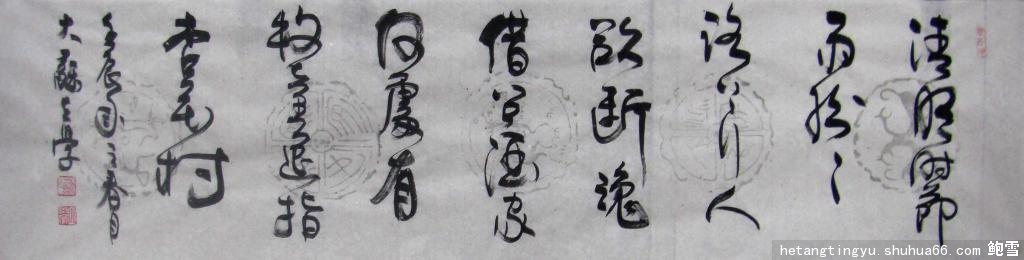 清明时节
雨纷々
路上行人
欲断魂
借问酒家
何处有
牧童遥指
杏花村
壬辰年之春月
hetangtingyu.shuhua66.com 鲍雪